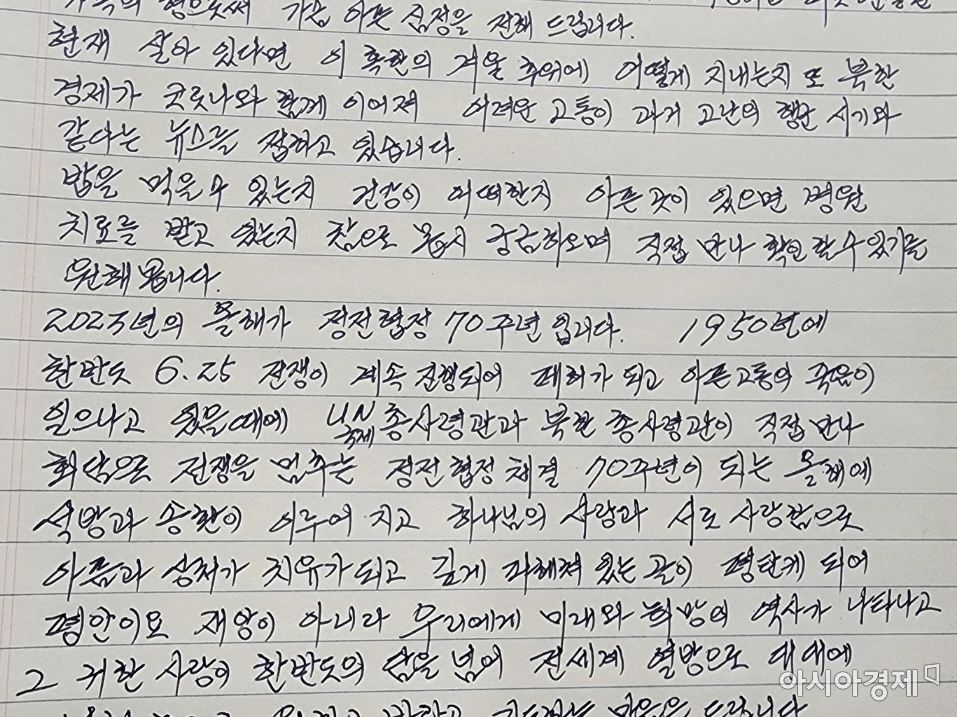 가족의 형으로써 가슴 아픈 심정을 전해 드립니다.
현재 살아 있다면 이 혹한의 겨울 추위에 어떻게 지내는지 또 북한
경제가 코롯나와 함께 이어져 어려운 고통이 과거 고난의 행군 시기와
같다는 뉴스를 접하고 있습니다.
밥을 먹을수 있는지 건강이 어떠한지 아픈 곳이 있으면 병원
치료를 받고 있는지 참으로 몹시 궁금하으며 직접 만나 확인 할수 있기를
원해 봅니다.
2023년의 올해가 정전협정 70주년 입니다. 1950년에
한반도 6.25 전쟁이 계속 진행되어 폐허가 되고 아픈고통의 죽음이
일으나고 있을때에 UN국제총사령관과 북한 총사령관이 직접 만나
회담으로 전쟁을 멈추는 정전협정 체결 70주년이 되는 올해에
석방과 송환이 이루어 지고 하나님의 사랑과 서로 사랑함으로
아픔과 상처가 치유가되고 깊게 파헤쳐 있는 골이 평탄케 되어
평안이요 재앙이 아니라 우리에게 미래와 희망의 역사가 나타나고
그 귀한 사랑이 한반도의 담을 넘어 전세계 열방으로 대대에
아시아경제